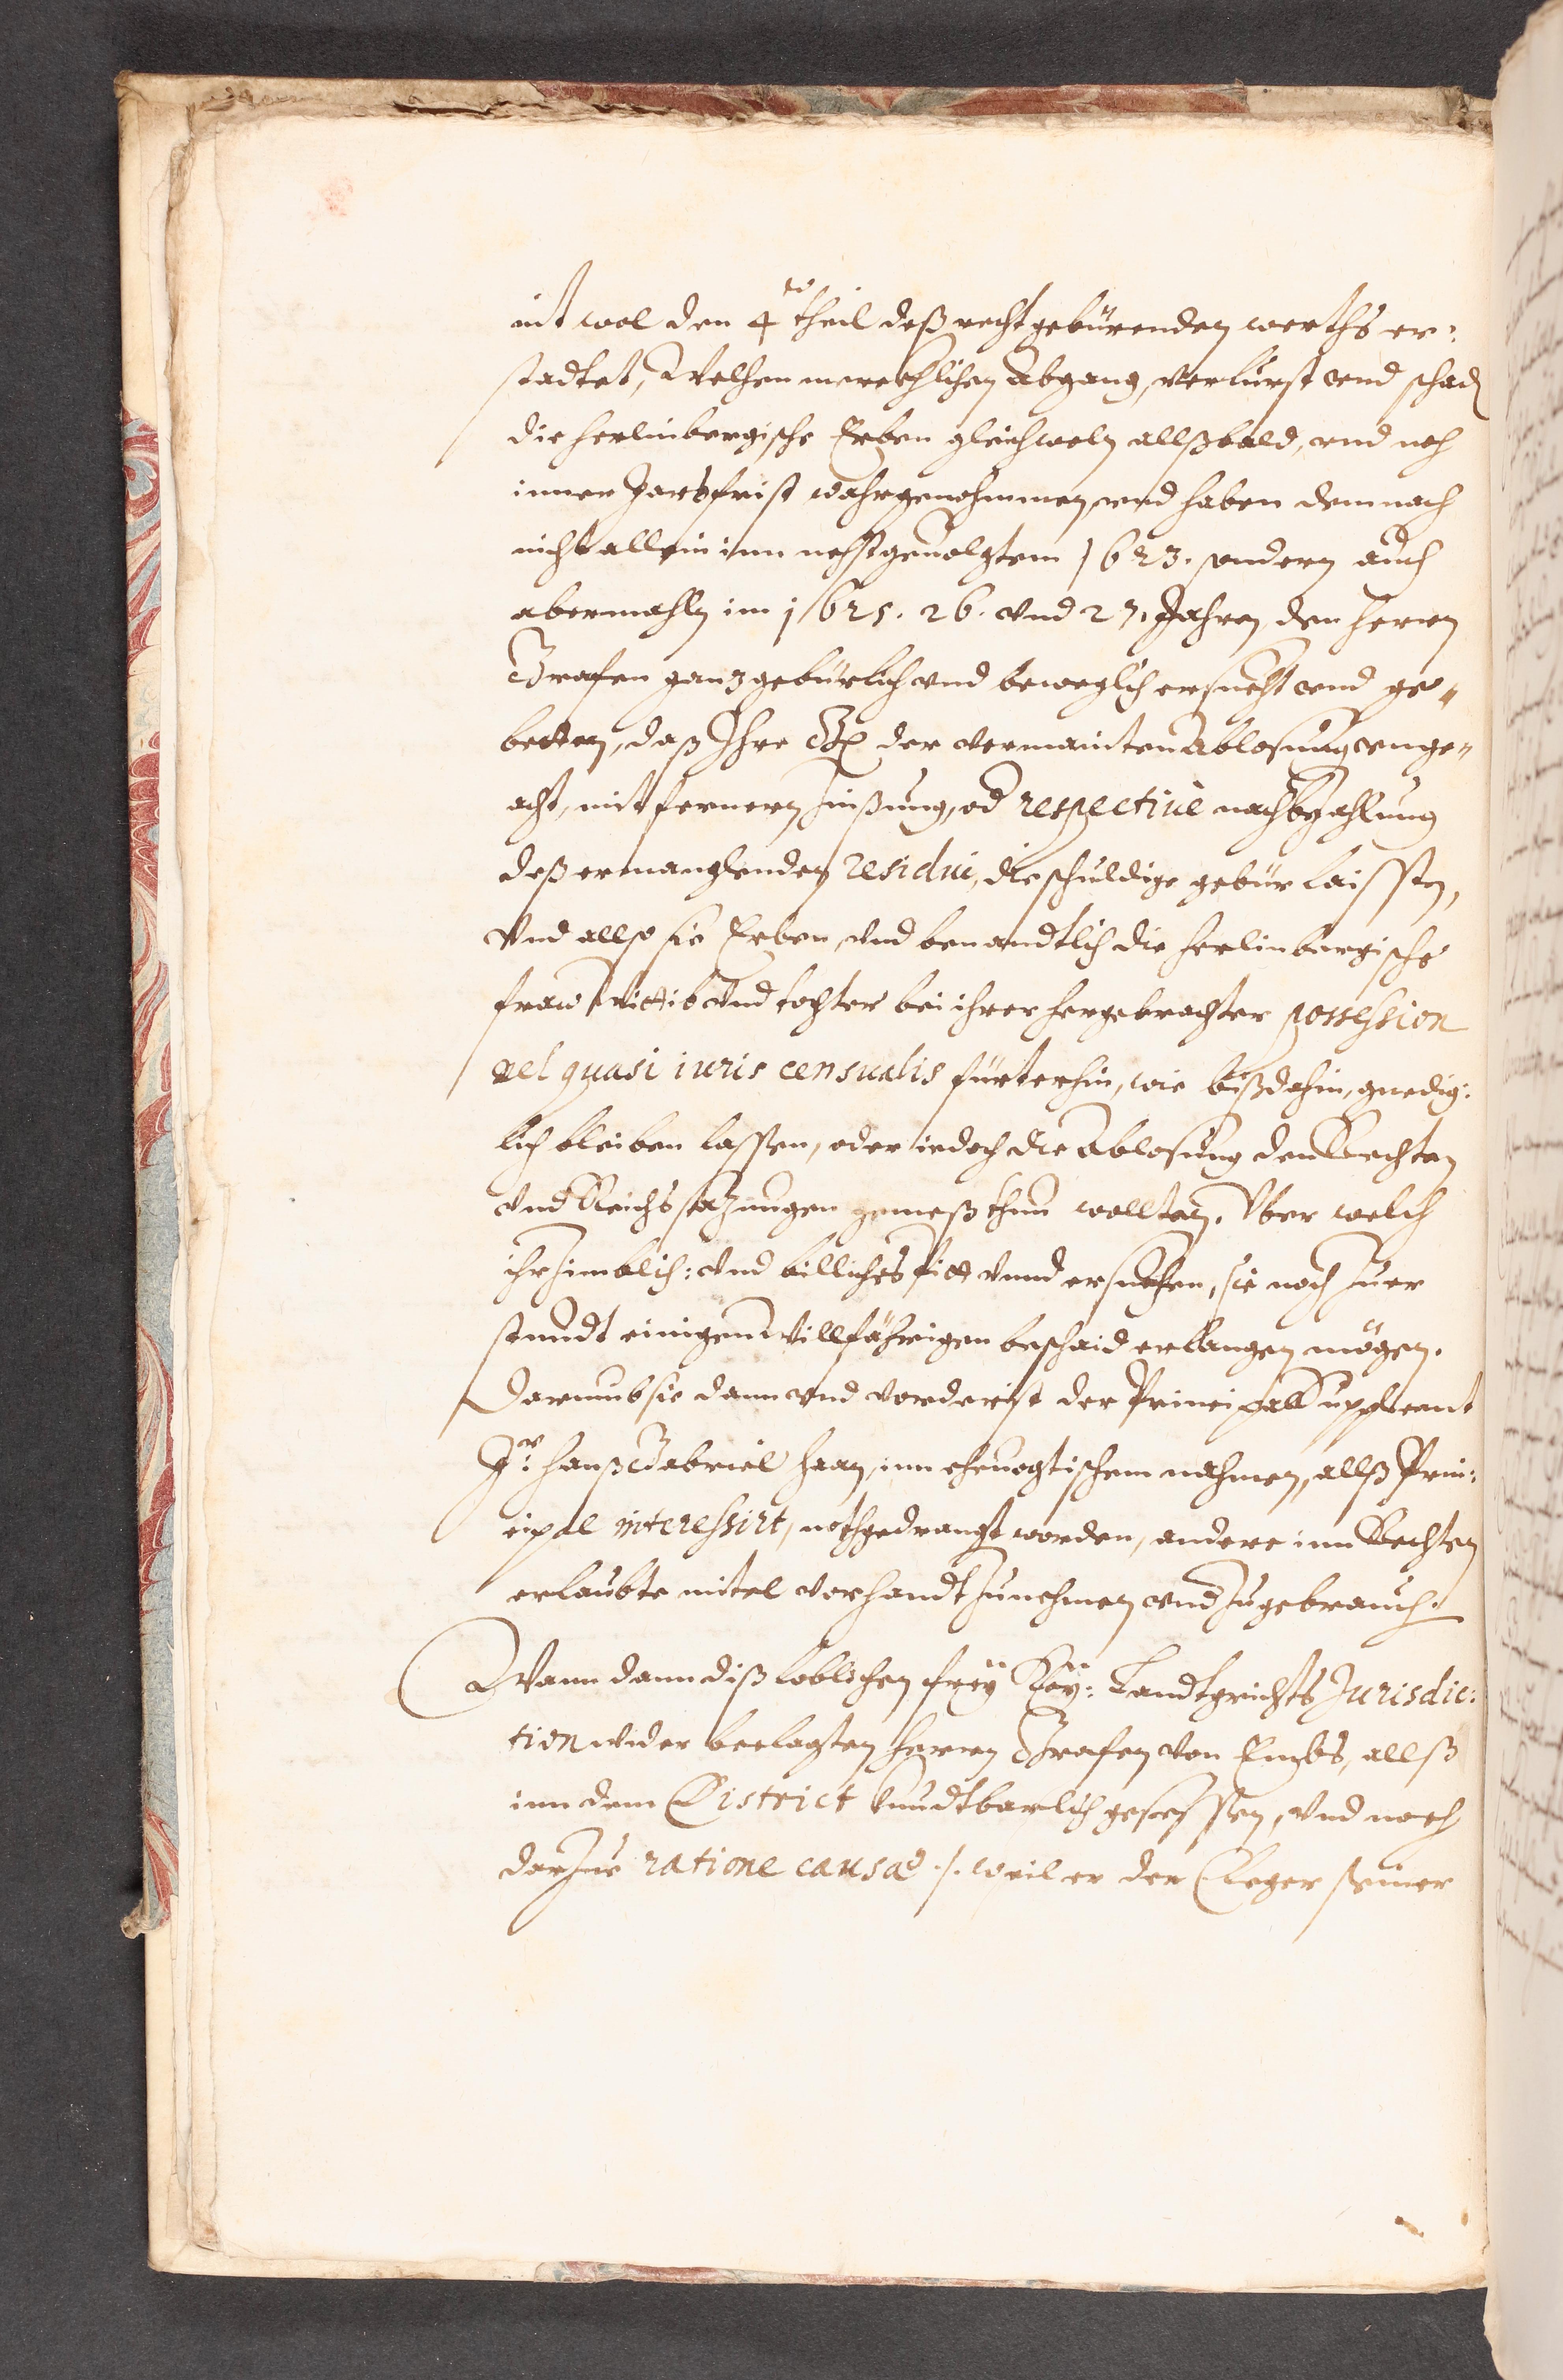 nit wol den 4ten theil deß recht gebürenden werths er:
stadtet, Welhen merckhlichen Abgang, verlurst vnd schad
die herlinbergische Erben gleichwoln allßbald, vnd noch
inner Jarsfrist wahrgenohmmen, vnd haben demnach
nicht allein inn nehstgeuolgtem 1623. sondern auch
abermahln im 1625. 26. vnd 27. Jahren den herren
Grafen ganz gebürlich vnd beweglich ersucht vnd ge„
betten, daß Ihre Gn der vermainten Ablosung vnge„
acht, mit fernern Zinßung, od respectiuè nachbzahlung
deß ermanglenden residui, die schuldige gebür laisten,
Vnd allso sie Erben, vnd benandtlich die herlinbergische
fraw Wittib vnd tochter bei ihrer hergebrachter possession
vel quasi iuris censualis fürterhin, wie bißdahin, gnedig:
lich bleiben lassen, oder iedoch die Ablosung den Rechten
vnd Reichs satzungen gemeß thun wollten. Vber welch
ihr Zimblich: vnd billiches bitt vnnd ersuchen, sie noch Zuer
stundt einigen Willfährigen beschaid erlangen mögen.
Darumb sie dann vnd vorderist der Principall Supplicant
Jr. hanß Gabriel haan, inn eheuogtischem nahmen, allß Prin:
cipal interessirt, nothgedrangt worden, andere inn Rechten
erlaubte mitel vorhandt Zunehmen vnd Zugebrauch.
Wann dann diß loblichen freÿ Kaÿ: Landtgrichts Jurisdic:
tion wider beclagten herren Grafen von Embs, allß
inn dem District kundtbarlich gesessen, vnd noch
darzue ratione causae ./. weil er der Cleger seiner